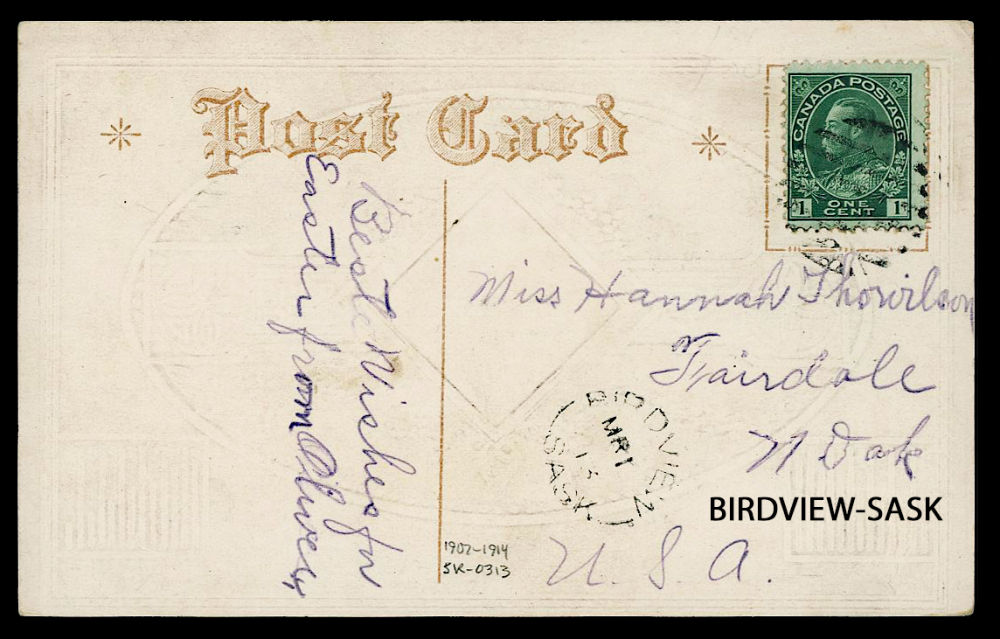 Post Card
CANADA POSTAGE
1 ONE CENT 1
Best Wishes for
Easter from Oliver,
Miss Hannah
Fairdale
N Dak
U. S. A.
BIRDVIEW
MR 1
SASK
BIRDVIEW-SASK
1907-1914
SK-0313